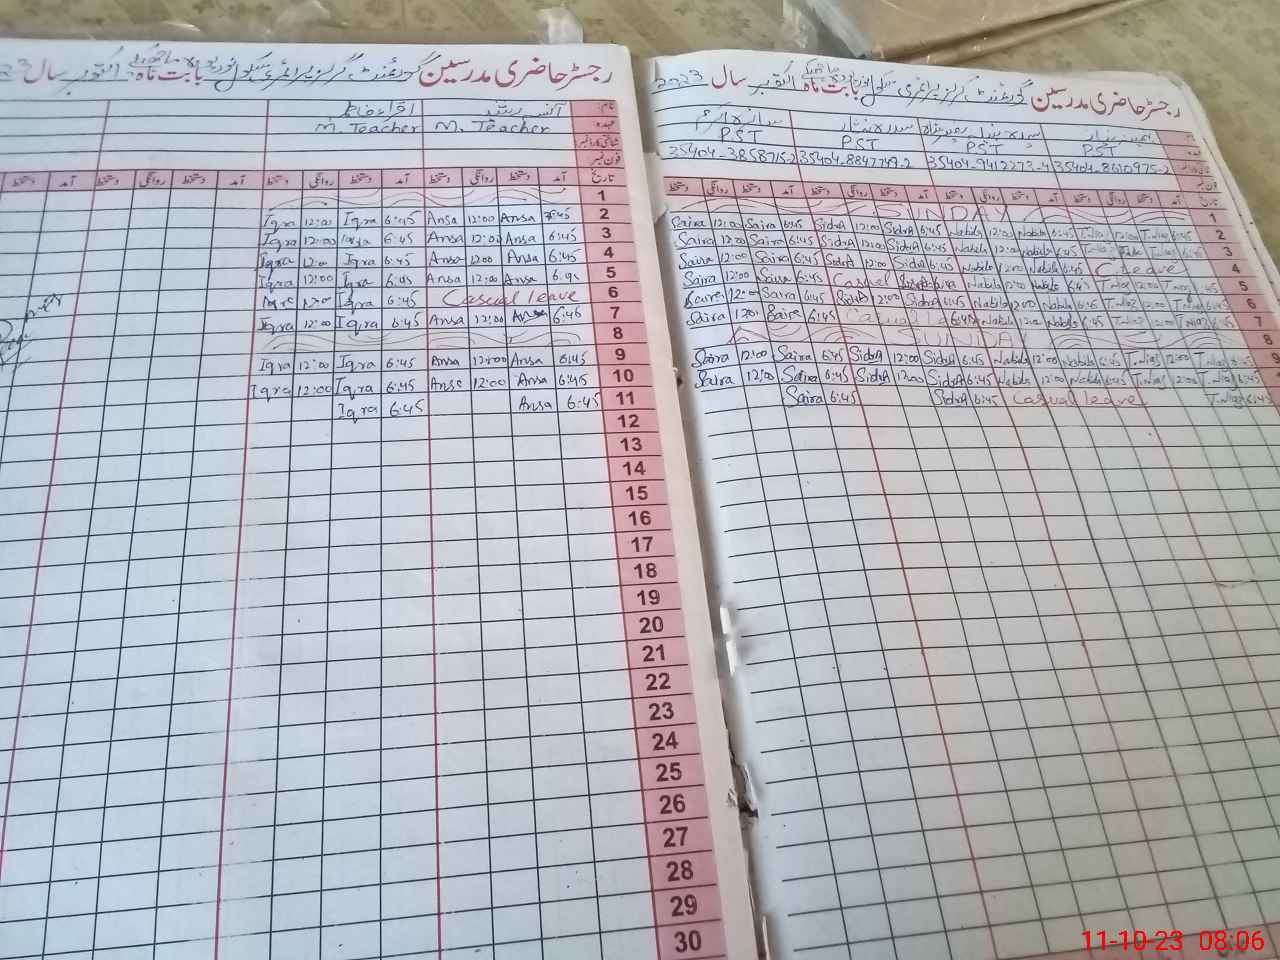 رجسٹر حاضری مدرسین گورنمنٹ گرلز پرائمری سکول بابت ماہ اکتوبر سال 2023
نام
عہدہ PST PST PST PST
35404-8610975-2 35404-9412273-4 35404-8847749-2 35404-3858715-2
تاریخ آمد دستخط روانگی دستخط آمد دستخط روانگی دستخط آمد دستخط روانگی دستخط آمد دستخط روانگی دستخط
1 SUNDAY
2 Saira 12:00 Saira 6:45 Sidra 12:00 Sidra 6:45 Nabila 12:00 Nabila 6:45 T.Niaz 12:00 T.Niaz 6:45
3 Saira 12:00 Saira 6:45 Sidra 12:00 Sidra 6:45 Nabila 12:00 Nabila 6:45
4 Saira 12:00 Saira 6:45 Sidra 12:00 Sidra 6:45 Nabila 12:00 Nabila 6:45 C.leave
5 Saira 12:00 Saira 6:45 Casual Nabila 12:00 Nabila 6:45 T.Niaz 12:00 T.Niaz 6:45
6 12:00 Saira 6:45 Sidra 12:00 Sidra 6:45 Nabila 12:00 Nabila 6:45 T.Niaz 12:00 T.Niaz 6:45
7 Saira 12:00 6:45 Casual 6:45 Nabila 12:00 Nabila 6:45 T.Niaz 12:00 T.Niaz 6:45
8 SUNDAY
9 Saira 12:00 Saira 6:45 Sidra 12:00 Sidra 6:45 Nabila 12:00 Nabila 6:45 T.Niaz 12:00 T.Niaz 6:45
Saira 12:00 Saira 6:45 Sidra 12:00 Sidra 6:45 Nabila 12:00 Nabila 6:45 T.Niaz 12:00 T.Niaz 6:45
Saira 6:45 Sidra 6:45 Casual leave T.Niaz 6:45
رجسٹر حاضری مدرسین گورنمنٹ گرلز پرائمری سکول بابت ماہ اکتوبر سال
نام اقراء
عہدہ M. Teacher M. Teacher
شناختی کارڈ نمبر
فون نمبر
تاریخ آمد دستخط روانگی دستخط آمد دستخط روانگی دستخط آمد دستخط روانگی دستخط آمد دستخط
1
2 Iqra 12:00 Iqra 6:45 Ansa 12:00 Ansa 6:45
3 Iqra 12:00 Iqra 6:45 Ansa 12:00 Ansa 6:45
4 Iqra 12:00 Iqra 6:45 Ansa 12:00 Ansa 6:45
5 Iqra 12:00 Iqra 6:45 Ansa 12:00 Ansa 6:45
6 Iqra 6:45 Casual leave
7 Iqra 12:00 Iqra 6:45 Ansa 12:00 Ansa 6:45
8
9 Iqra 12:00 Iqra 6:45 Ansa 12:00 Ansa 6:45
10 Iqra 12:00 Iqra 6:45 Ansa 12:00 Ansa 6:45
11 Iqra 6:45 Ansa 6:45
12
13
14
15
16
17
18
19
20
21
22
23
24
25
26
27
28
29
30
11-10-23 08:06